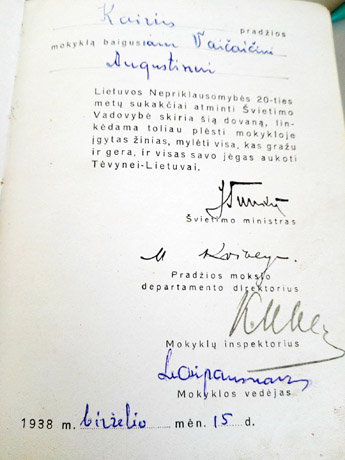 Kairių pradžios
mokyklą baigusiam Vaičaičiui
Augustinui
Lietuvos Nepriklausomybės 20-ties
metų sukakčiai atminti Švietimo
Vadovybė skiria šią dovaną, lin-
kėdama toliau plėsti mokykloje
įgytas žinias, mylėti visa, kas gražu
ir gera, ir visas savo jėgas aukoti
Tėvynei-Lietuvai.
Švietimo ministras
Pradžios mokslo
departamento direktorius
Mokyklų inspektorius
Mokyklos vedėjas
1938 m. birželio mėn. 15 d.